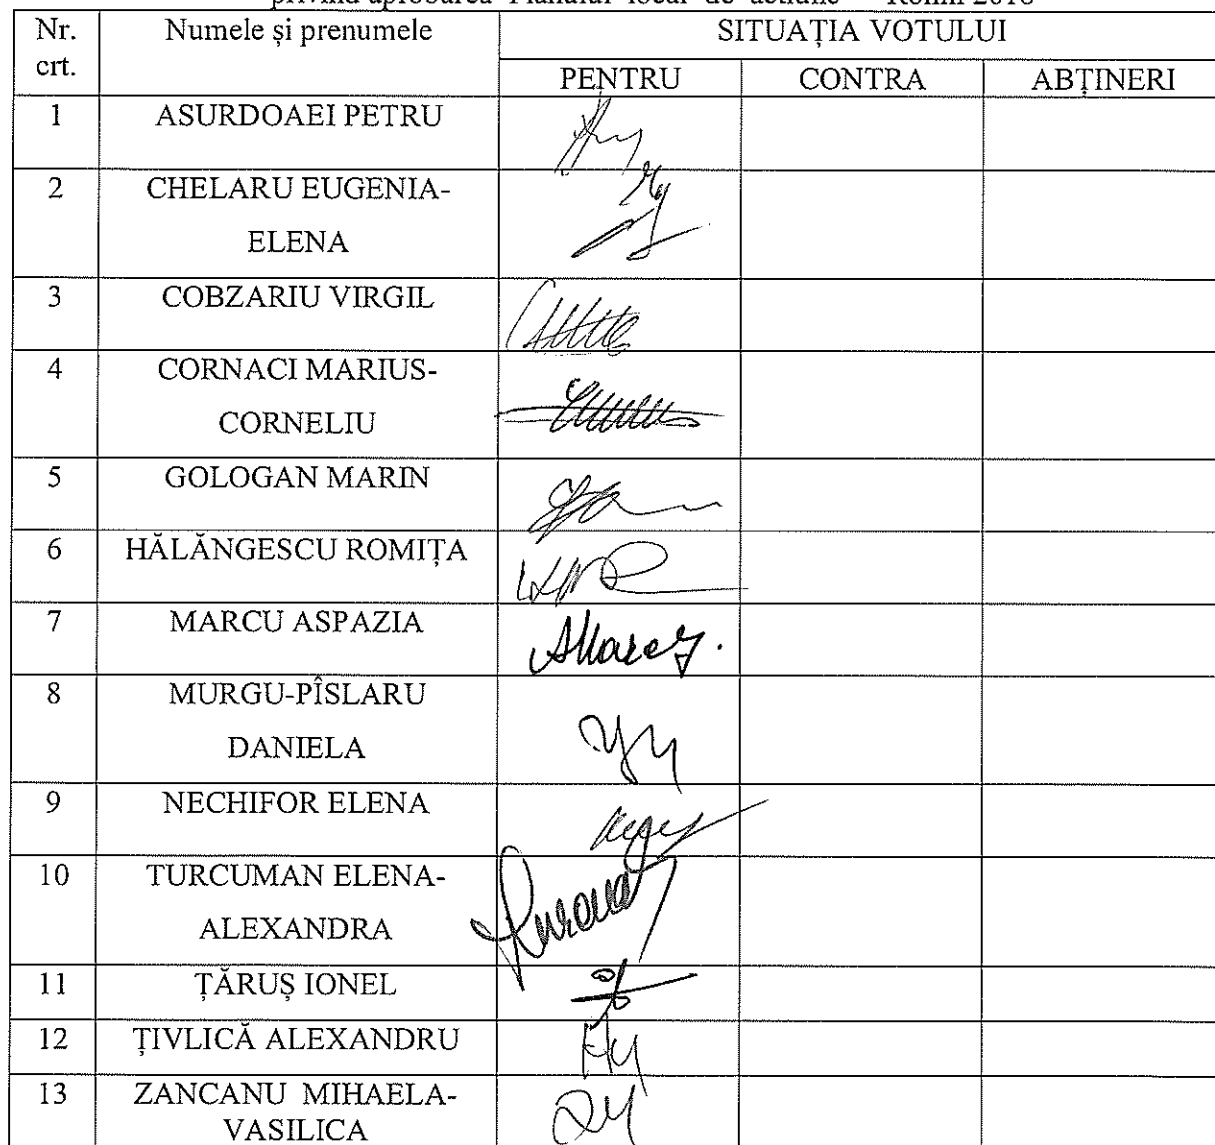 privind aprobarea Planului local de actiune
Nr. crt. Numele și prenumele SITUAȚIA VOTULUI
PENTRU CONTRA ABȚINERI
1 ASURDOAEI PETRU
2 CHELARU EUGENIA-
ELENA
3 COBZARIU VIRGIL
4 CORNACI MARIUS-
CORNELIU
5 GOLOGAN MARIN
6 HĂLĂNGESCU ROMIȚA
7 MARCU ASPAZIA
8 MURGU-PÎSLARU
DANIELA
9 NECHIFOR ELENA
10 TURCUMAN ELENA-
ALEXANDRA
11 ȚĂRUȘ IONEL
12 ȚIVLICĂ ALEXANDRU
13 ZANCANU MIHAELA-
VASILICA